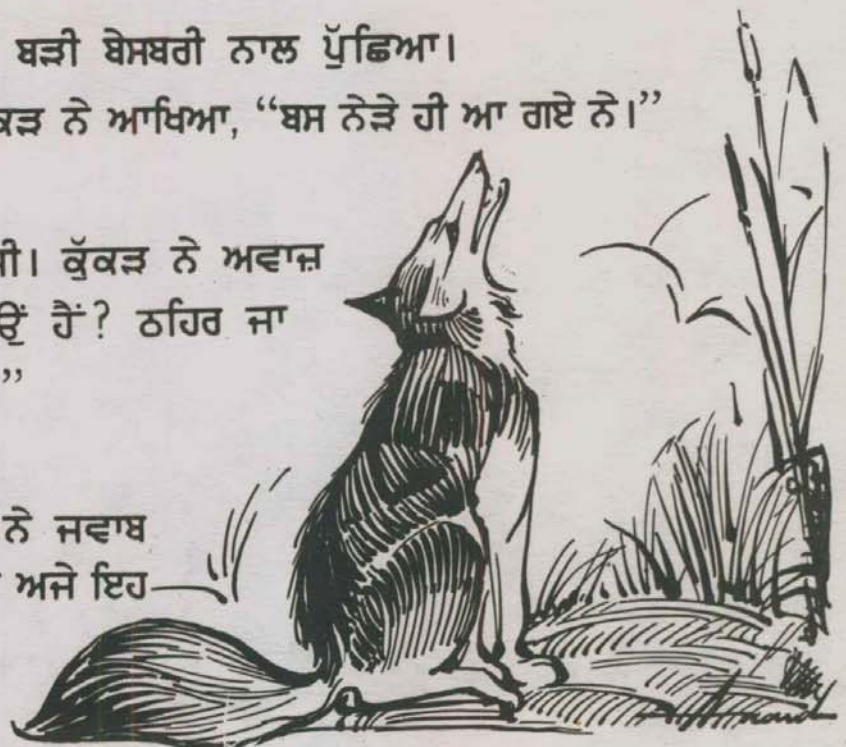 ਬੜੀ ਬੇਸਬਰੀ ਨਾਲ ਪੁੱਛਿਆ।
ਕੜ ਨੇ ਆਖਿਆ, “ਬਸ ਨੇੜੇ ਹੀ ਆ ਗਏ ਨੇ।”
ਕੁੱਕੜ ਨੇ ਅਵਾਜ਼
ਹੈਂ? ਠਹਿਰ ਜਾ
”
ਨੇ ਜਵਾਬ
ਅਜੇ ਇਹ